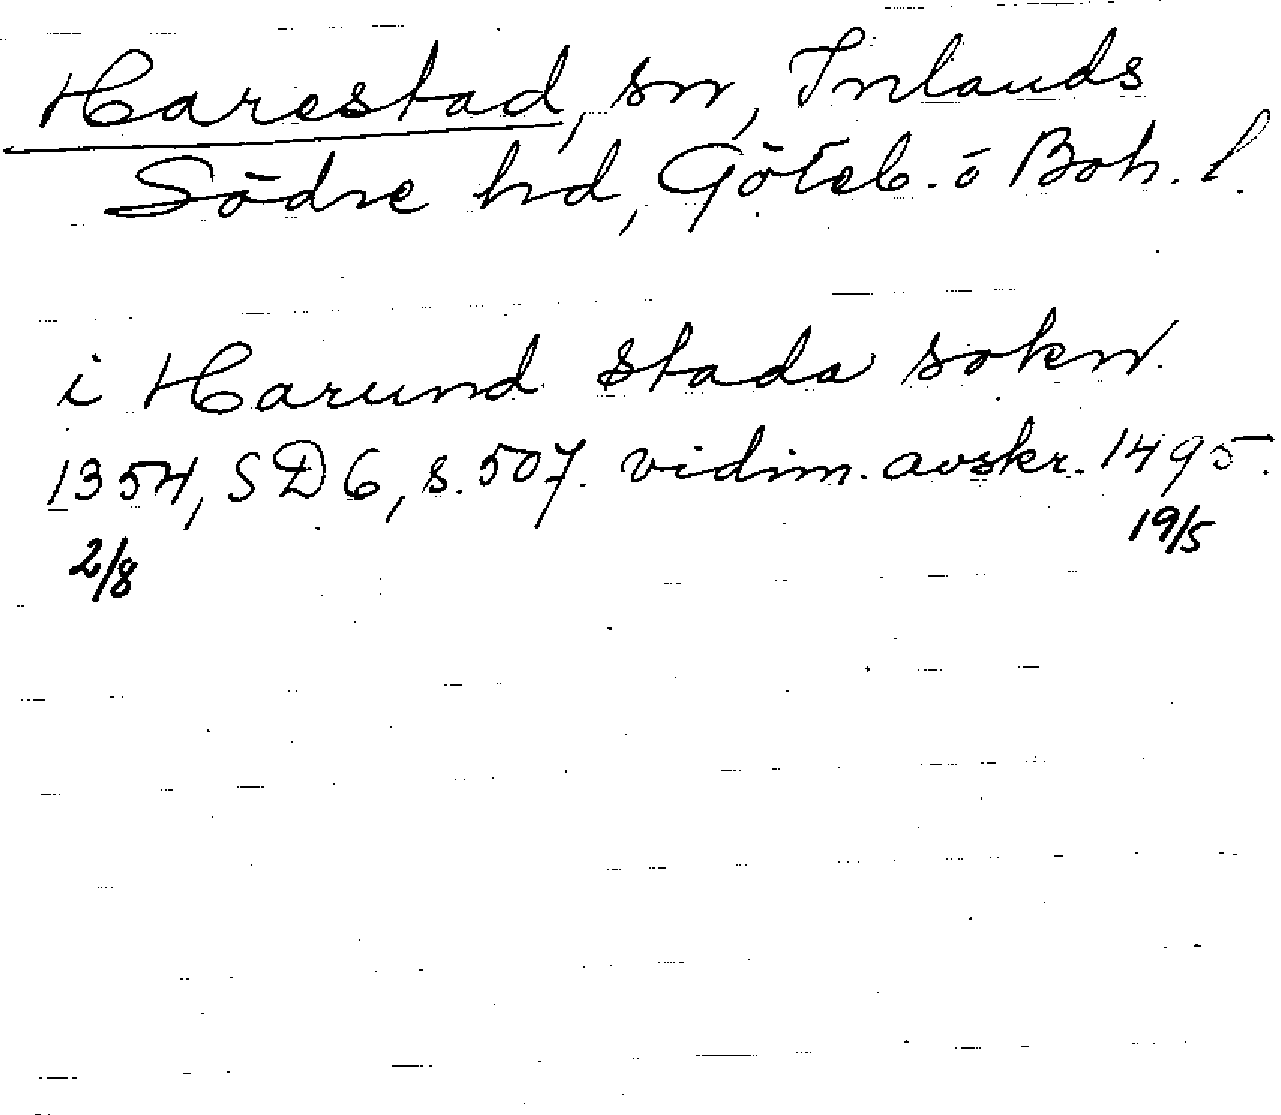 Harestad, sn, Inlands
Södre hd, Göteb. o Boh. l.
i Harund stada sokn.
1354, SD 6, s. 507. vidim. avskr. 1495.
2/8 19/5